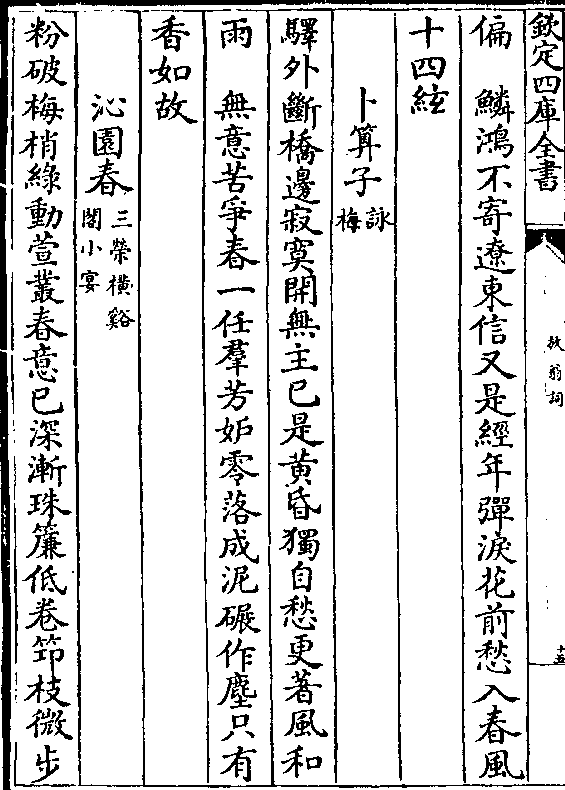 欽定四庫全書
放翁詞
十五
偏　鱗鴻不寄遼東信又是經年彈淚花前愁入春風
十四絃
卜算子詠梅
驛外斷橋邊寂寞開無主已是黄昏獨自愁更著風和
雨　無意苦爭春一任羣芳妒零落成泥碾作塵只有
香如故
沁園春三榮橫谿閣小宴
粉破梅梢綠動萱叢春意已深漸珠簾低卷筇枝微步